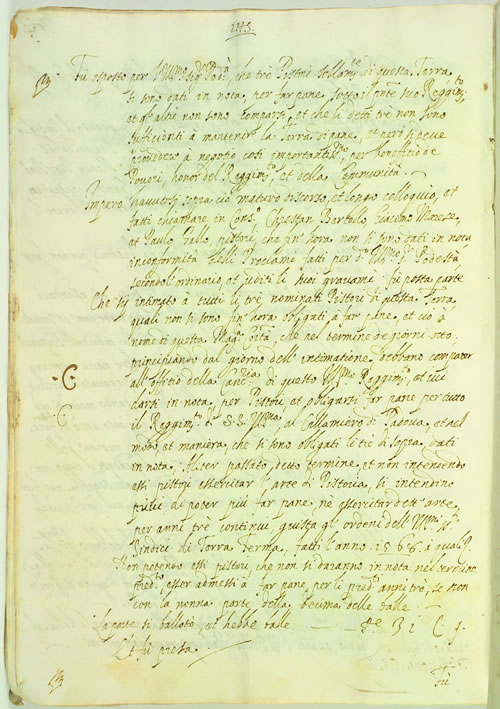 1113.
Fù esposto per l'Ill.mo Sig.r Pod.à, che trè Pistori sollam.te di questa Terra
si sono dati in nota, per far pane, sotto il
et gl'altri non sono comparsi, et che li detti trè non sono
sufficienti à mantenir la Terra di pane, et però si deve
proveder à negotio così importantiss.o, per beneficio de
Poveri, honor del Reggim.to, et della Communità.
Imperò havutosi sopra ciò maturo discorso, et longo colloquio, et
fatti chiamare in Cons.o Bortolo, Giacomo
et Paulo Gallo, pistori, che fin' hora non si sono dati in nota
in conformità delli Proclami fatti per d.o Ill.mo S.r Podestà
secondo l'ordinario, et uditi li suoi gravami: fù posta parte
Che sij intimato à tutti li trè nominati Pistori di questa Terra,
quali non si sono fin' hora obligati à far pane, et ciò à
nome di questa Mag.ca Città, che nel termine de giorni otto
principiando dal giorno dell'intimatione debbano comparer
all'offitio della Canc.ria di questo Ill.mo Reggim.to, et ivi
darsi in nota, per Pistori, et obligarsi far pane per tutto
il Reggim.to di S. S. Ill.ma al Callamiero di Padova, et nel
modo, et maniera, che si sono obligati li trè di sopra, dati
in nota. Aliter passato detto termine, et non intendendo
essi pistori essercitar l'arte di Pistoria, si intendino
privi di poter più far pane, nè essercitar dett'arte
per anni trè continui, giusta gl'ordeni dell'Ill.mi S.ri
Sindici di Terra Ferma, fatti l'anno 1566. à quali
Non potendo essi pistori, che non si daranno in nota nel termine
pred.to, esser admessi à far pane, per li pred.ti anni trè, se non
con la parte della delle balle —
La parte si ballotò, et hebbe balle — P.o 31 C 1.
Et fù presa.
C.
C.
Fù